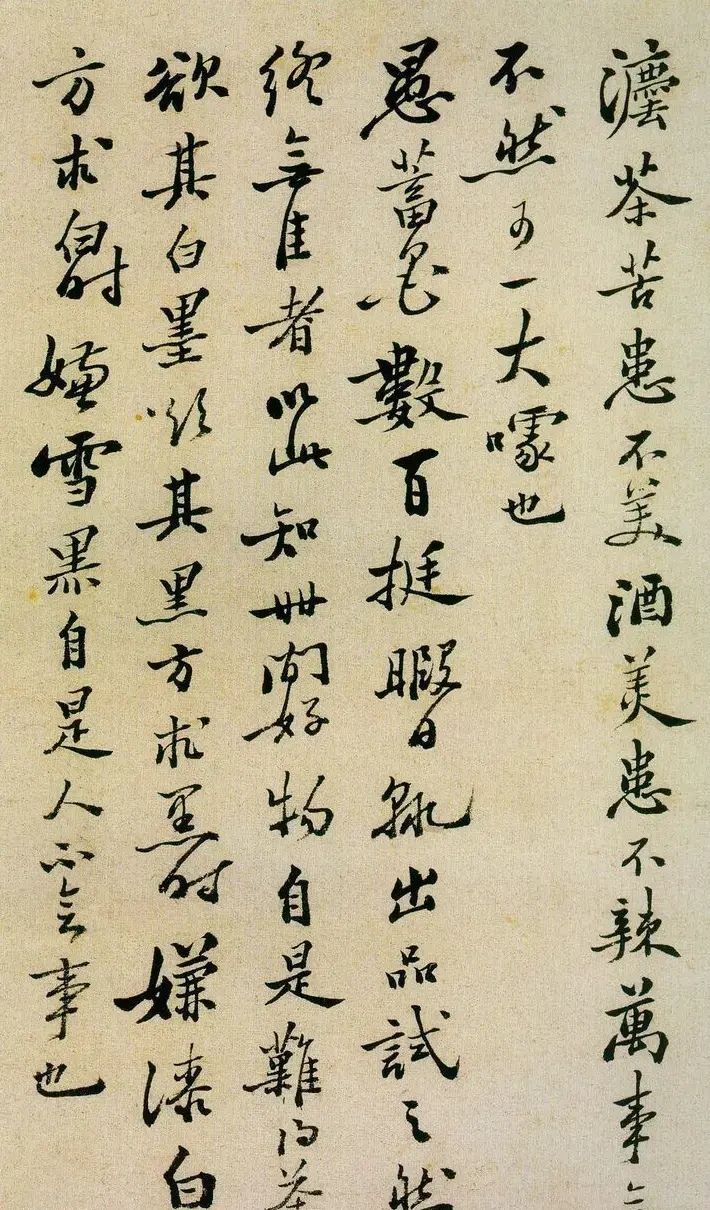 茶苦患不美酒美患不辣萬事
不然可一大噱也
愚蓄墨數百挺暇日輙出品試之然
終無佳者以此知世間好物自是難得茶
欲其白墨欲其黑方求黑時嫌漆白
方求白時嫌雪黑自是人不會事也